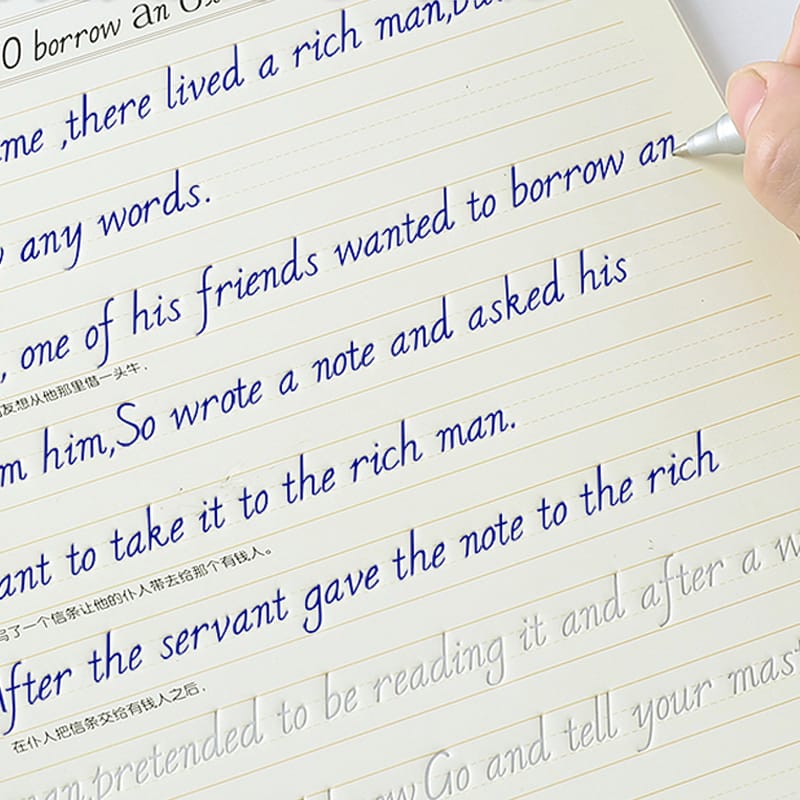 O borrow an
me ,there lived a rich man,
any words.
, one of his friends wanted to borrow an
友想从他那里借一头牛.
m him,So wrote a note and asked his
ant to take it to the rich man.
写了一个信条让他的仆人带去给那个有钱人。
After the servant gave the note to the rich
在仆人把信条交给有钱人之后.
man,pretended to be reading it and after a w
Go and tell your mast